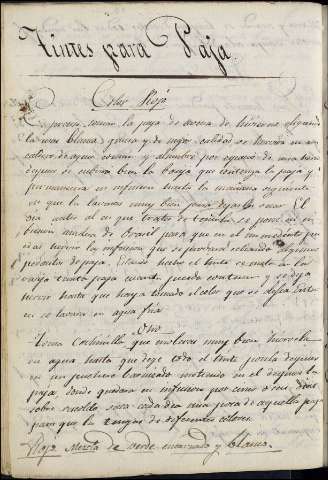 Tintes para Paja
Color Rojo
Es preciso tomar la paja de avena de hivierno eligiendo
la mas blanca, gruesa y de mejor calidad se hervirá en un
caldero de agua comun y alumbre por espacio de una hora
despues se cubrirá bien la baxija que contenga la paja y
permanecera en infusion hasta la mañana siguiente
en que la lavaras muy bien para dejarla secar. El
dia antes al en que trates de teñirla se pone en un
buen de Brasil para que en el
hervir la infusion que se probará echando algunos
pedazitos de paja. Estando hecho el tinte se mete en la
vasija tanta paja cuanta pueda contener y se deja
hervir hasta que haya tomado el color que se desea
se lavara en agua fria.
Otro
Toma Cochinilla que moleras muy bien
en agua hasta que deje todo el tinte ponla despues
en un puchero barnizado metiendo en el despues la
paja, donde quedara en infusion por cinco o seis dias
sobre rescoldo saca cada dia una poca de aquella paja
para que la tengas de diferentes colores.
Rojo Mezcla de verde encarnado y blanco.